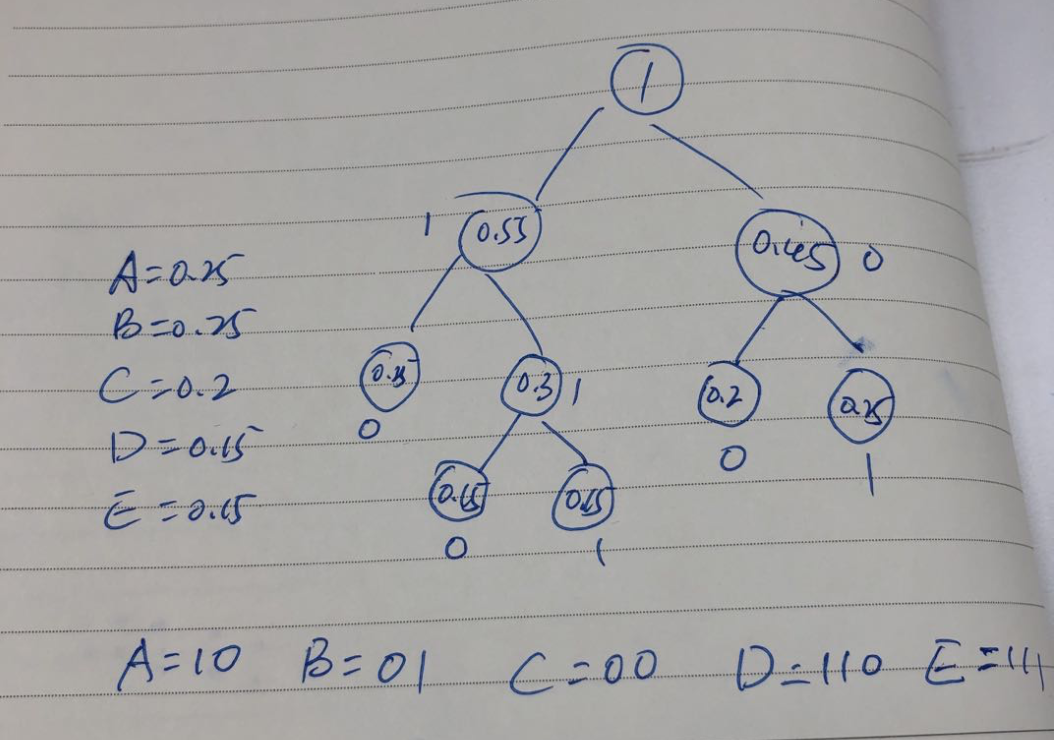 1
1 0.55 0.45 0
A=0.25
B=0.25
C=0.2
D=0.15
E=0.15
0.25 0.3 1 0.2 0.25
0 0 1
0.15 0.15
0 1
A=10 B=01 C=00 D=110 E=111